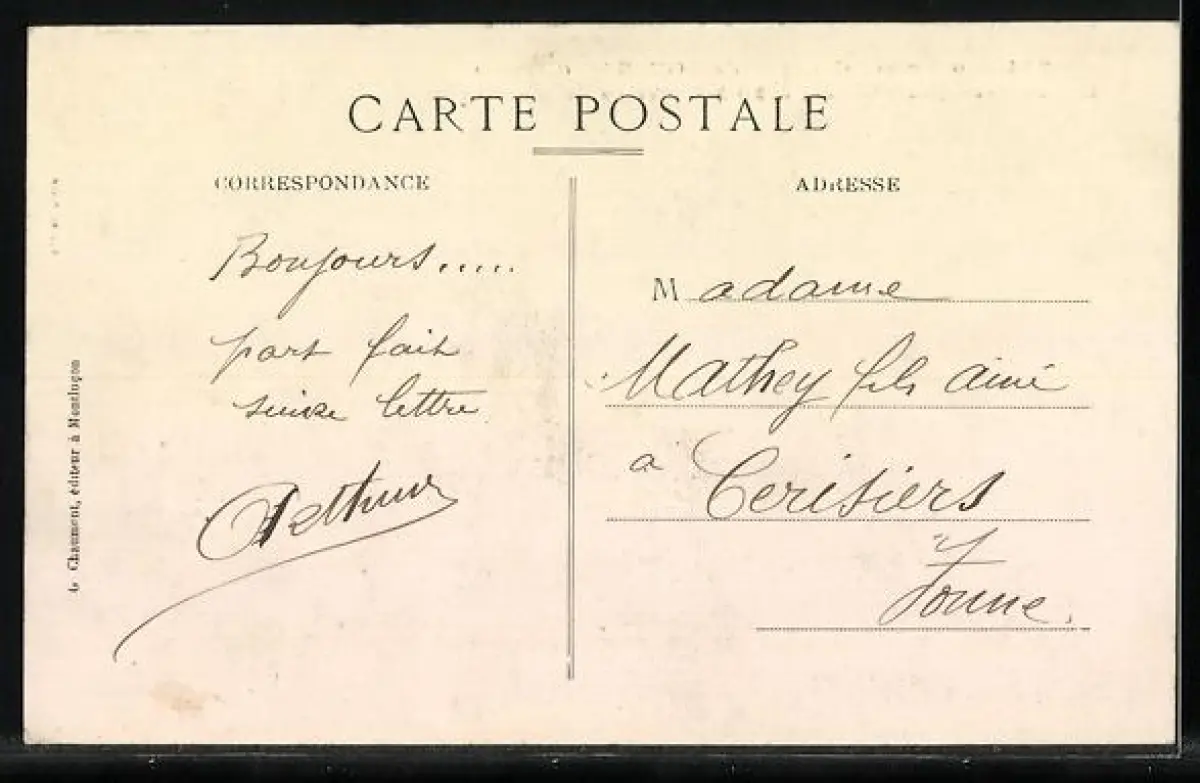 CARTE POSTALE
CORRESPONDANCE
Boujours.....
part fait
suivre lettre
Arthur
ADRESSE
Madame
Mathey fils aîné
a Cerisiers
Yonne.
G. Chaument, éditeur à Montluçon